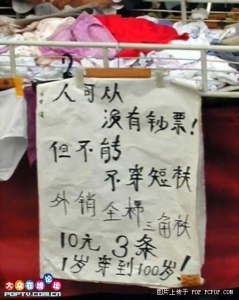 人可以
没有钞票!
但不能
不穿短袄
外销全棉
三角袄
10元3条
1岁穿到100岁!
大众在线论坛
POPTV.COM.CN
图片上传于 POP.PCPOP.COM